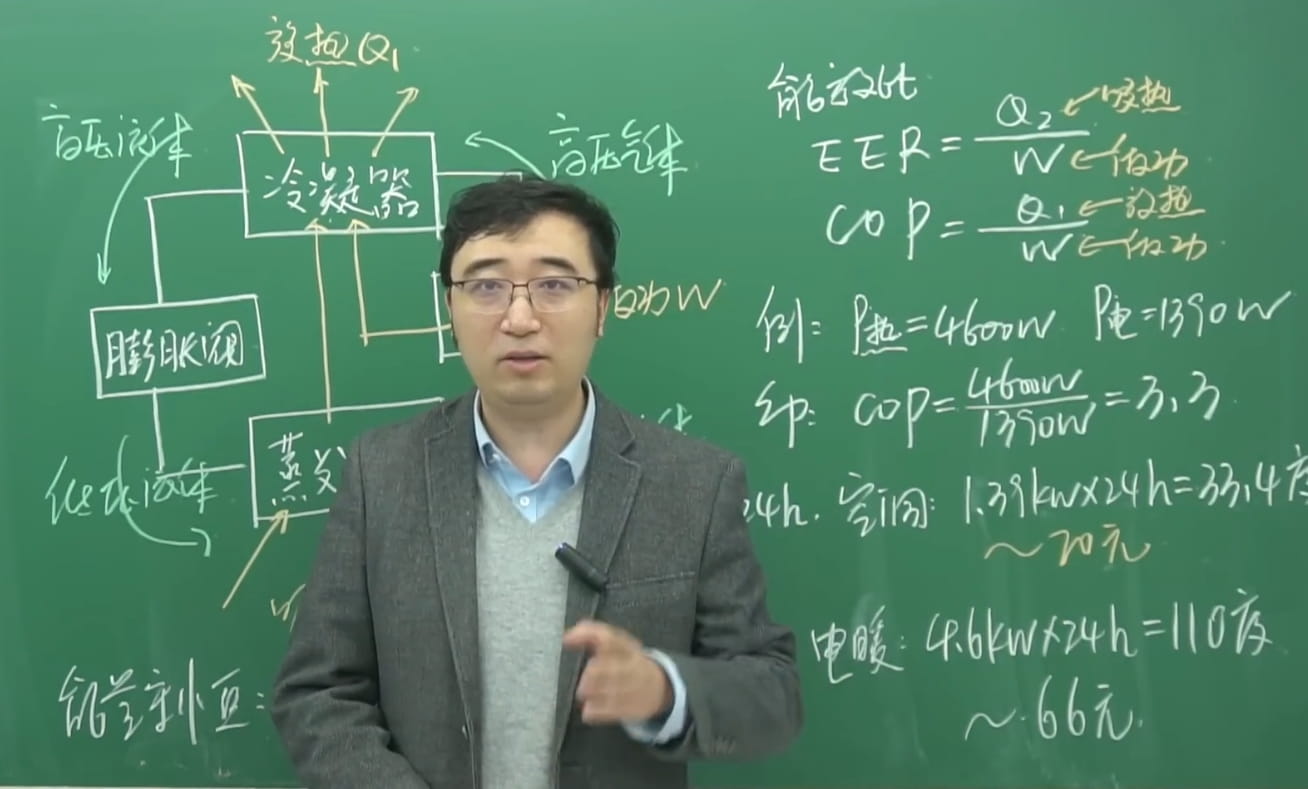 放热Q₁
高压液体
高压气体
冷凝器
膨胀阀
功W
蒸发
低压液体
能量守恒:
能效比
EER=Q₂/W
吸热
做功
COP=Q₁/W
放热
做功
例: P热=4600W P电=1390W
即: COP=4600W/1390W=3.3
24h. 空调: 1.39kw×24h=33.4度
~20元
电暖: 4.6kw×24h=110度
~66元